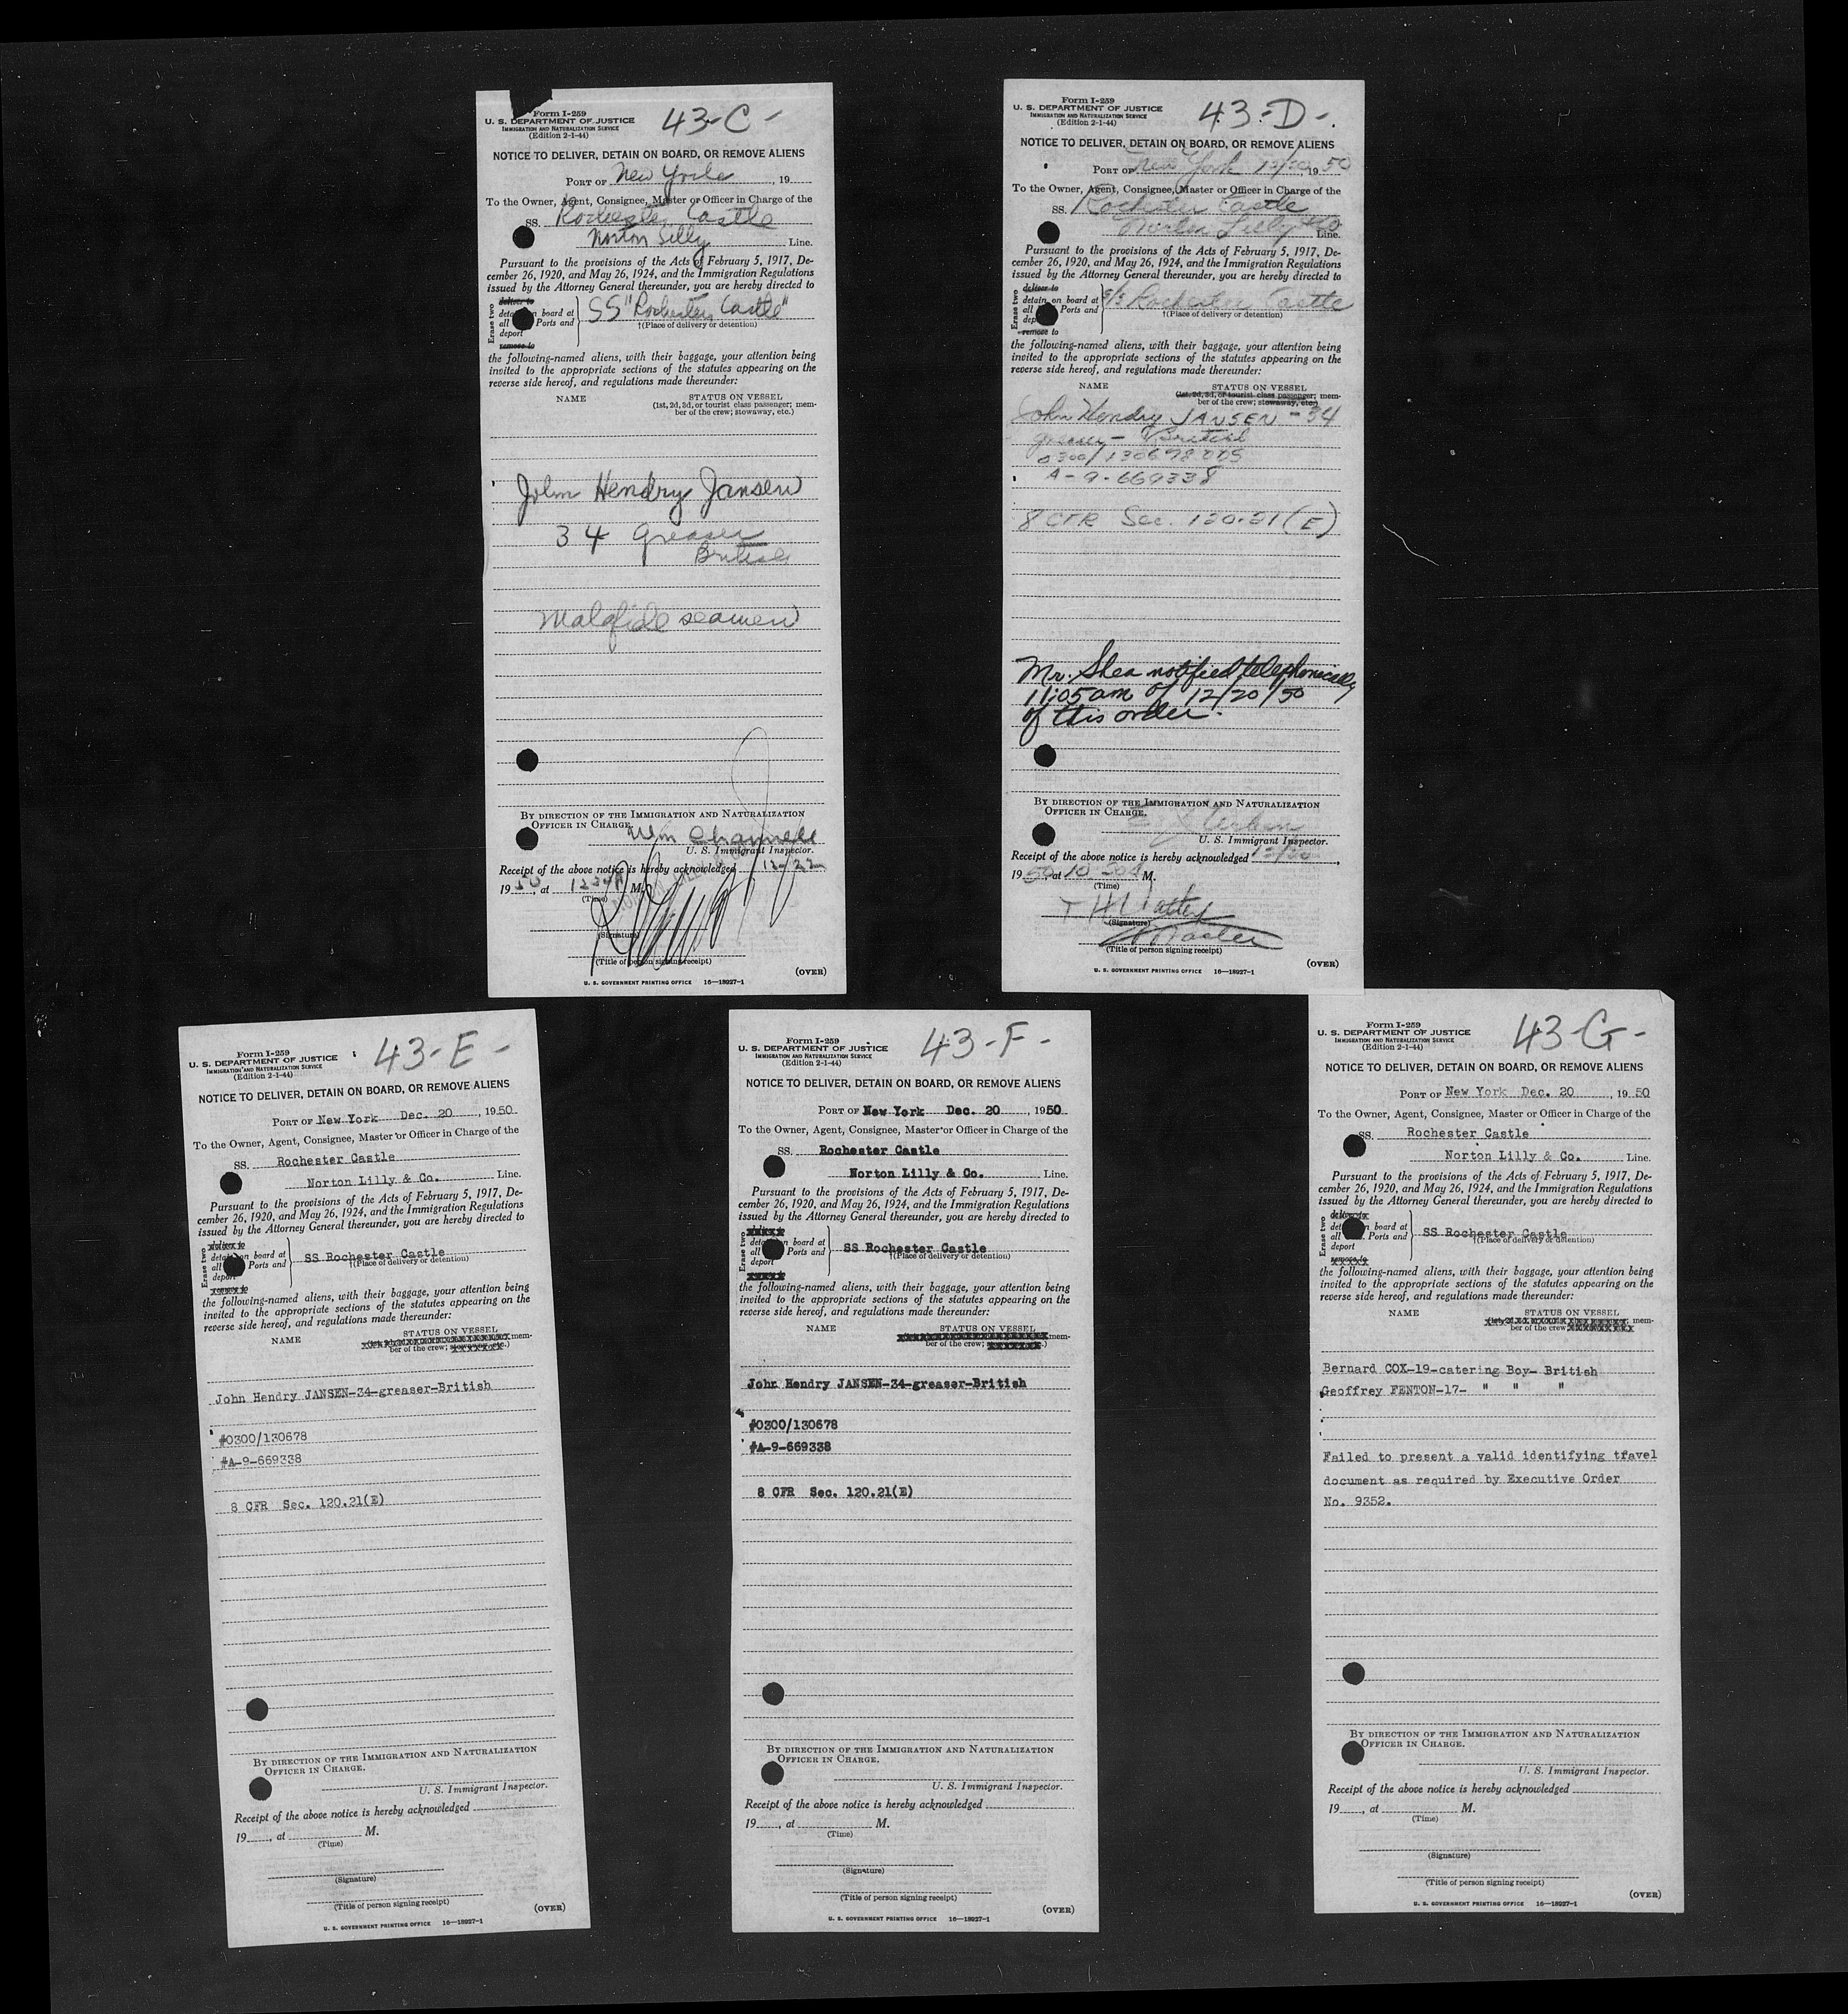 Form I-259
U. S. DEPARTMENT OF JUSTICE
IMMIGRATION AND NATURALIZATION SERVICE
(Edition 2-1-44)
43-C-
NOTICE TO DELIVER, DETAIN ON BOARD, OR REMOVE ALIENS
PORT OF New York, 19
To the Owner, Agent, Consignee, Master or Officer in Charge of the
SS. Rochester Castle
Norton Lilly Line.
Pursuant to the provisions of the Acts of February 5, 1917, De-
cember 26, 1920, and May 26, 1924, and the Immigration Regulations
issued by the Attorney General thereunder, you are hereby directed to
Erase two
deliver to
detain on board at
all Ports and
deport
remove to
SS "Rochester Castle"
†(Place of delivery or detention)
the following-named aliens, with their baggage, your attention being
invited to the appropriate sections of the statutes appearing on the
reverse side hereof, and regulations made thereunder:
NAME STATUS ON VESSEL
(1st, 2d, 3d, or tourist class passenger; mem-
ber of the crew; stowaway, etc.)
John Hendry Jansen
34 greaser
British
Malafide seamen
BY DIRECTION OF THE IMMIGRATION AND NATURALIZATION
OFFICER IN CHARGE.
Wm
U. S. Immigrant Inspector.
Receipt of the above notice is hereby acknowledged 12/22
1950, at M.
(Time)
(Signature)
(Title of person signing receipt)
(OVER)
U. S. GOVERNMENT PRINTING OFFICE 16—18927-1
Form I-259
U. S. DEPARTMENT OF JUSTICE
IMMIGRATION AND NATURALIZATION SERVICE
(Edition 2-1-44)
43-D-
NOTICE TO DELIVER, DETAIN ON BOARD, OR REMOVE ALIENS
PORT OF New York 12/20 1950
To the Owner, Agent, Consignee, Master or Officer in Charge of the
SS. Rochester Castle
Norton Lilly & Co Line.
Pursuant to the provisions of the Acts of February 5, 1917, De-
cember 26, 1920, and May 26, 1924, and the Immigration Regulations
issued by the Attorney General thereunder, you are hereby directed to
Erase two
deliver to
detain on board at
all Ports and
deport
remove to
S/S Rochester Castle
†(Place of delivery or detention)
the following-named aliens, with their baggage, your attention being
invited to the appropriate sections of the statutes appearing on the
reverse side hereof, and regulations made thereunder:
NAME STATUS ON VESSEL
(1st, 2d, 3d, or tourist class passenger; mem-
ber of the crew; stowaway, etc.)
John Hendry JANSEN - 34
greaser - British
0300/130678
A-9-669338
8 CFR Sec. 120.21(E)
Mr. Shea notified telephonically
11:05 am of 12/20/50
of this order.
BY DIRECTION OF THE IMMIGRATION AND NATURALIZATION
OFFICER IN CHARGE.
U. S. Immigrant Inspector.
Receipt of the above notice is hereby acknowledged 12/20
1950, at 10 M.
(Time)
(Signature)
Master
(Title of person signing receipt)
(OVER)
U. S. GOVERNMENT PRINTING OFFICE 16—18927-1
Form I-259
U. S. DEPARTMENT OF JUSTICE
IMMIGRATION AND NATURALIZATION SERVICE
(Edition 2-1-44)
43-E-
NOTICE TO DELIVER, DETAIN ON BOARD, OR REMOVE ALIENS
PORT OF New York Dec. 20, 1950
To the Owner, Agent, Consignee, Master or Officer in Charge of the
SS. Rochester Castle
Norton Lilly & Co. Line.
Pursuant to the provisions of the Acts of February 5, 1917, De-
cember 26, 1920, and May 26, 1924, and the Immigration Regulations
issued by the Attorney General thereunder, you are hereby directed to
Erase two
deliver to
detain on board at
all Ports and
deport
remove to
SS Rochester Castle
†(Place of delivery or detention)
the following-named aliens, with their baggage, your attention being
invited to the appropriate sections of the statutes appearing on the
reverse side hereof, and regulations made thereunder:
NAME STATUS ON VESSEL
mem-
ber of the crew;
John Hendry JANSEN-34-greaser-British
#0300/130678
#A-9-669338
8 CFR Sec. 120.21(E)
BY DIRECTION OF THE IMMIGRATION AND NATURALIZATION
OFFICER IN CHARGE.
U. S. Immigrant Inspector.
Receipt of the above notice is hereby acknowledged
19, at M.
(Time)
(Signature)
(Title of person signing receipt)
(OVER)
U. S. GOVERNMENT PRINTING OFFICE 16—18927-1
Form I-259
U. S. DEPARTMENT OF JUSTICE
IMMIGRATION AND NATURALIZATION SERVICE
(Edition 2-1-44)
43-F-
NOTICE TO DELIVER, DETAIN ON BOARD, OR REMOVE ALIENS
PORT OF New York Dec. 20, 1950
To the Owner, Agent, Consignee, Master or Officer in Charge of the
SS. Rochester Castle
Norton Lilly & Co. Line.
Pursuant to the provisions of the Acts of February 5, 1917, De-
cember 26, 1920, and May 26, 1924, and the Immigration Regulations
issued by the Attorney General thereunder, you are hereby directed to
Erase two
detain on board at
all Ports and
deport
SS Rochester Castle
†(Place of delivery or detention)
the following-named aliens, with their baggage, your attention being
invited to the appropriate sections of the statutes appearing on the
reverse side hereof, and regulations made thereunder:
NAME STATUS ON VESSEL
mem-
ber of the crew;
John Hendry JANSEN-34-greaser-British
#0300/130678
#A-9-669338
8 CFR Sec. 120.21(E)
BY DIRECTION OF THE IMMIGRATION AND NATURALIZATION
OFFICER IN CHARGE.
U. S. Immigrant Inspector.
Receipt of the above notice is hereby acknowledged
19, at M.
(Time)
(Signature)
(Title of person signing receipt)
(OVER)
U. S. GOVERNMENT PRINTING OFFICE 16—18927-1
Form I-259
U. S. DEPARTMENT OF JUSTICE
IMMIGRATION AND NATURALIZATION SERVICE
(Edition 2-1-44)
43-G-
NOTICE TO DELIVER, DETAIN ON BOARD, OR REMOVE ALIENS
PORT OF New York Dec. 20, 1950
To the Owner, Agent, Consignee, Master or Officer in Charge of the
SS. Rochester Castle
Norton Lilly & Co. Line.
Pursuant to the provisions of the Acts of February 5, 1917, De-
cember 26, 1920, and May 26, 1924, and the Immigration Regulations
issued by the Attorney General thereunder, you are hereby directed to
Erase two
deliver to
detain on board at
all Ports and
deport
remove to
SS Rochester Castle
†(Place of delivery or detention)
the following-named aliens, with their baggage, your attention being
invited to the appropriate sections of the statutes appearing on the
reverse side hereof, and regulations made thereunder:
NAME STATUS ON VESSEL
mem-
ber of the crew
Bernard COX-19-catering Boy- British
Geoffrey FENTON-17- " " "
Failed to present a valid identifying travel
document as required by Executive Order
No. 9352.
BY DIRECTION OF THE IMMIGRATION AND NATURALIZATION
OFFICER IN CHARGE.
U. S. Immigrant Inspector.
Receipt of the above notice is hereby acknowledged
19, at M.
(Time)
(Signature)
(Title of person signing receipt)
(OVER)
U. S. GOVERNMENT PRINTING OFFICE 16—18927-1